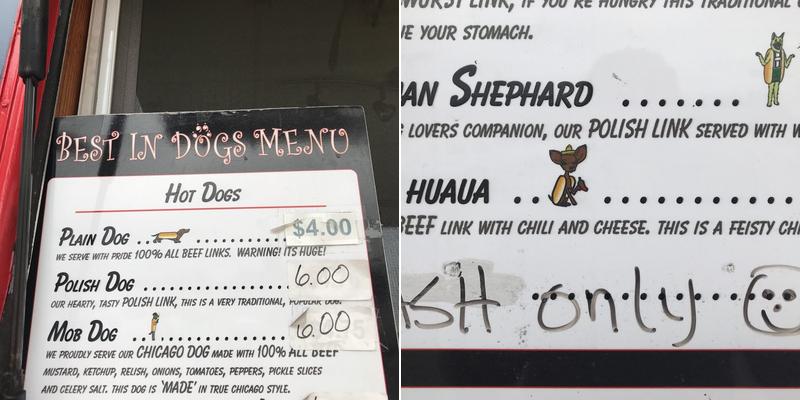 BEST IN DOGS MENU
HOT DOGS
PLAIN DOG .. ............ $4.00
WE SERVE WITH PRIDE 100% ALL BEEF LINKS. WARNING! ITS HUGE!
POLISH DOG ................ 6.00
OUR HEARTY, TASTY POLISH LINK, THIS IS A VERY TRADITIONAL, POPULAR DOG.
MOB DOG .. ............ 6.00
WE PROUDLY SERVE OUR CHICAGO DOG MADE WITH 100% ALL BEEF
MUSTARD, KETCHUP, RELISH, ONIONS, TOMATOES, PEPPERS, PICKLE SLICES
AND CELERY SALT. THIS DOG IS 'MADE' IN TRUE CHICAGO STYLE.
LINK, IF YOU'RE HUNGRY THIS TRADITIONAL
YOUR STOMACH.
AN SHEPHARD .......
LOVERS COMPANION, OUR POLISH LINK SERVED WITH
HUAUA .. ............
BEEF LINK WITH CHILI AND CHEESE. THIS IS A FEISTY
SH only